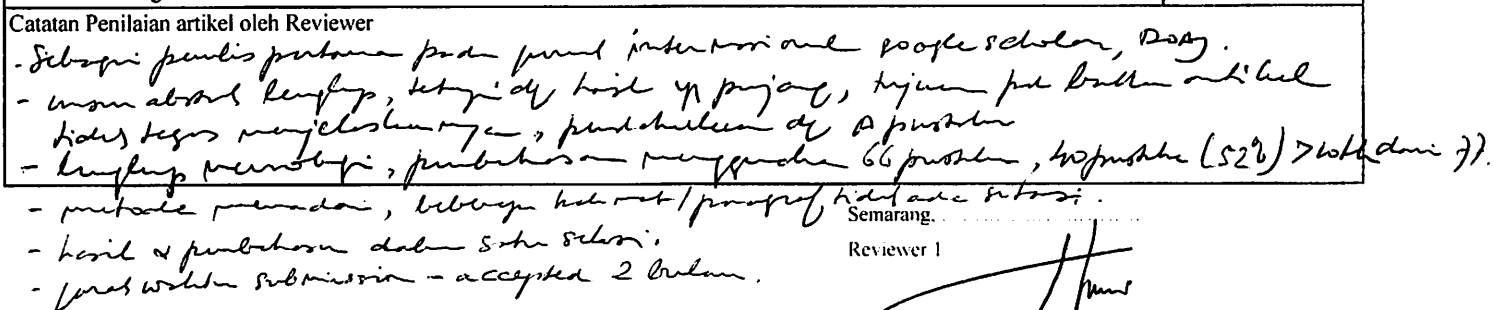 Catatan Penilaian artikel oleh Reviewer
- Sebagai penulis pertama pada jurnal internasional google scholar, DOAJ.
- unsur abstrak lengkap, tetapi dg hasil yg panjang, tujuan artikel
tidak tegas menjelaskannya, pendahuluan dg pustaka
- lengkap, pembahasan menggunakan 66 pustaka, 40 pustaka (52%) > dari 77.
- metode memadai, beberapa kalimat/paragraf tidak ada sitasi.
Semarang, ...................
- hasil & pembahasan dalam satu seksi.
Reviewer 1
- jarak waktu submission - accepted 2 bulan.